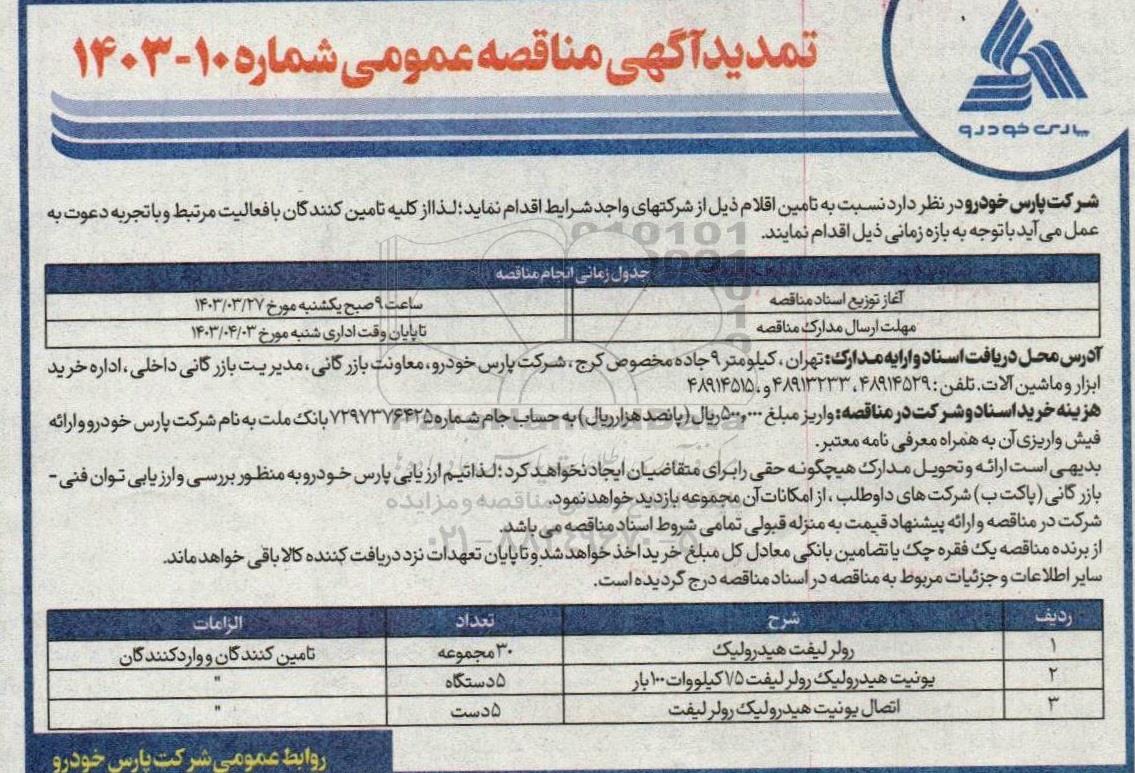 تمدید آگهی مناقصه عمومی شماره ۱۰-۱۴۰۳
پارس خودرو
شرکت پارس خودرو در نظر دارد نسبت به تامین اقلام ذیل از شرکتهای واجد شرایط اقدام نماید؛ لذا از کلیه تامین کنندگان با فعالیت مرتبط و با تجربه دعوت به
عمل می آید با توجه به بازه زمانی ذیل اقدام نمایند.
جدول زمانی انجام مناقصه
آغاز توزیع اسناد مناقصه ساعت ۹ صبح یکشنبه مورخ ۱۴۰۳/۰۳/۲۷
مهلت ارسال مدارک مناقصه تا پایان وقت اداری شنبه مورخ ۱۴۰۳/۰۴/۰۳
آدرس محل دریافت اسناد و ارایه مدارک: تهران، کیلومتر ۹ جاده مخصوص کرج، شرکت پارس خودرو، معاونت بازرگانی، مدیریت بازرگانی داخلی، اداره خرید
ابزار و ماشین آلات. تلفن: ۴۸۹۱۴۵۲۹، ۴۸۹۱۳۲۳۳ و، ۴۸۹۱۴۵۱۵
هزینه خرید اسناد و شرکت در مناقصه: واریز مبلغ ۵۰۰,۰۰۰ ریال (پانصد هزار ریال) به حساب جام شماره ۷۲۹۷۳۷۶۴۲۵ بانک ملت به نام شرکت پارس خودرو و ارائه
فیش واریزی آن به همراه معرفی نامه معتبر.
بدیهی است ارائه و تحویل مدارک هیچگونه حقی را برای متقاضیان ایجاد نخواهد کرد؛ لذا تیم ارزیابی پارس خودرو به منظور بررسی و ارزیابی توان فنی -
بازرگانی (پاکت ب) شرکت های داوطلب، از امکانات آن مجموعه بازدید خواهد نمود.
شرکت در مناقصه و ارائه پیشنهاد قیمت به منزله قبولی تمامی شروط اسناد مناقصه می باشد.
از برنده مناقصه یک فقره چک یا تضامین بانکی معادل کل مبلغ خرید اخذ خواهد شد و تا پایان تعهدات نزد دریافت کننده کالا باقی خواهد ماند.
سایر اطلاعات و جزئیات مربوط به مناقصه در اسناد مناقصه درج گردیده است.
ردیف شرح تعداد الزامات
۱ رولر لیفت هیدرولیک ۳۰ مجموعه تامین کنندگان و وارد کنندگان
۲ یونیت هیدرولیک رولر لیفت ۱/۵ کیلووات ۱۰۰ بار ۵ دستگاه "
۳ اتصال یونیت هیدرولیک رولر لیفت ۵ دست "
روابط عمومی شرکت پارس خودرو